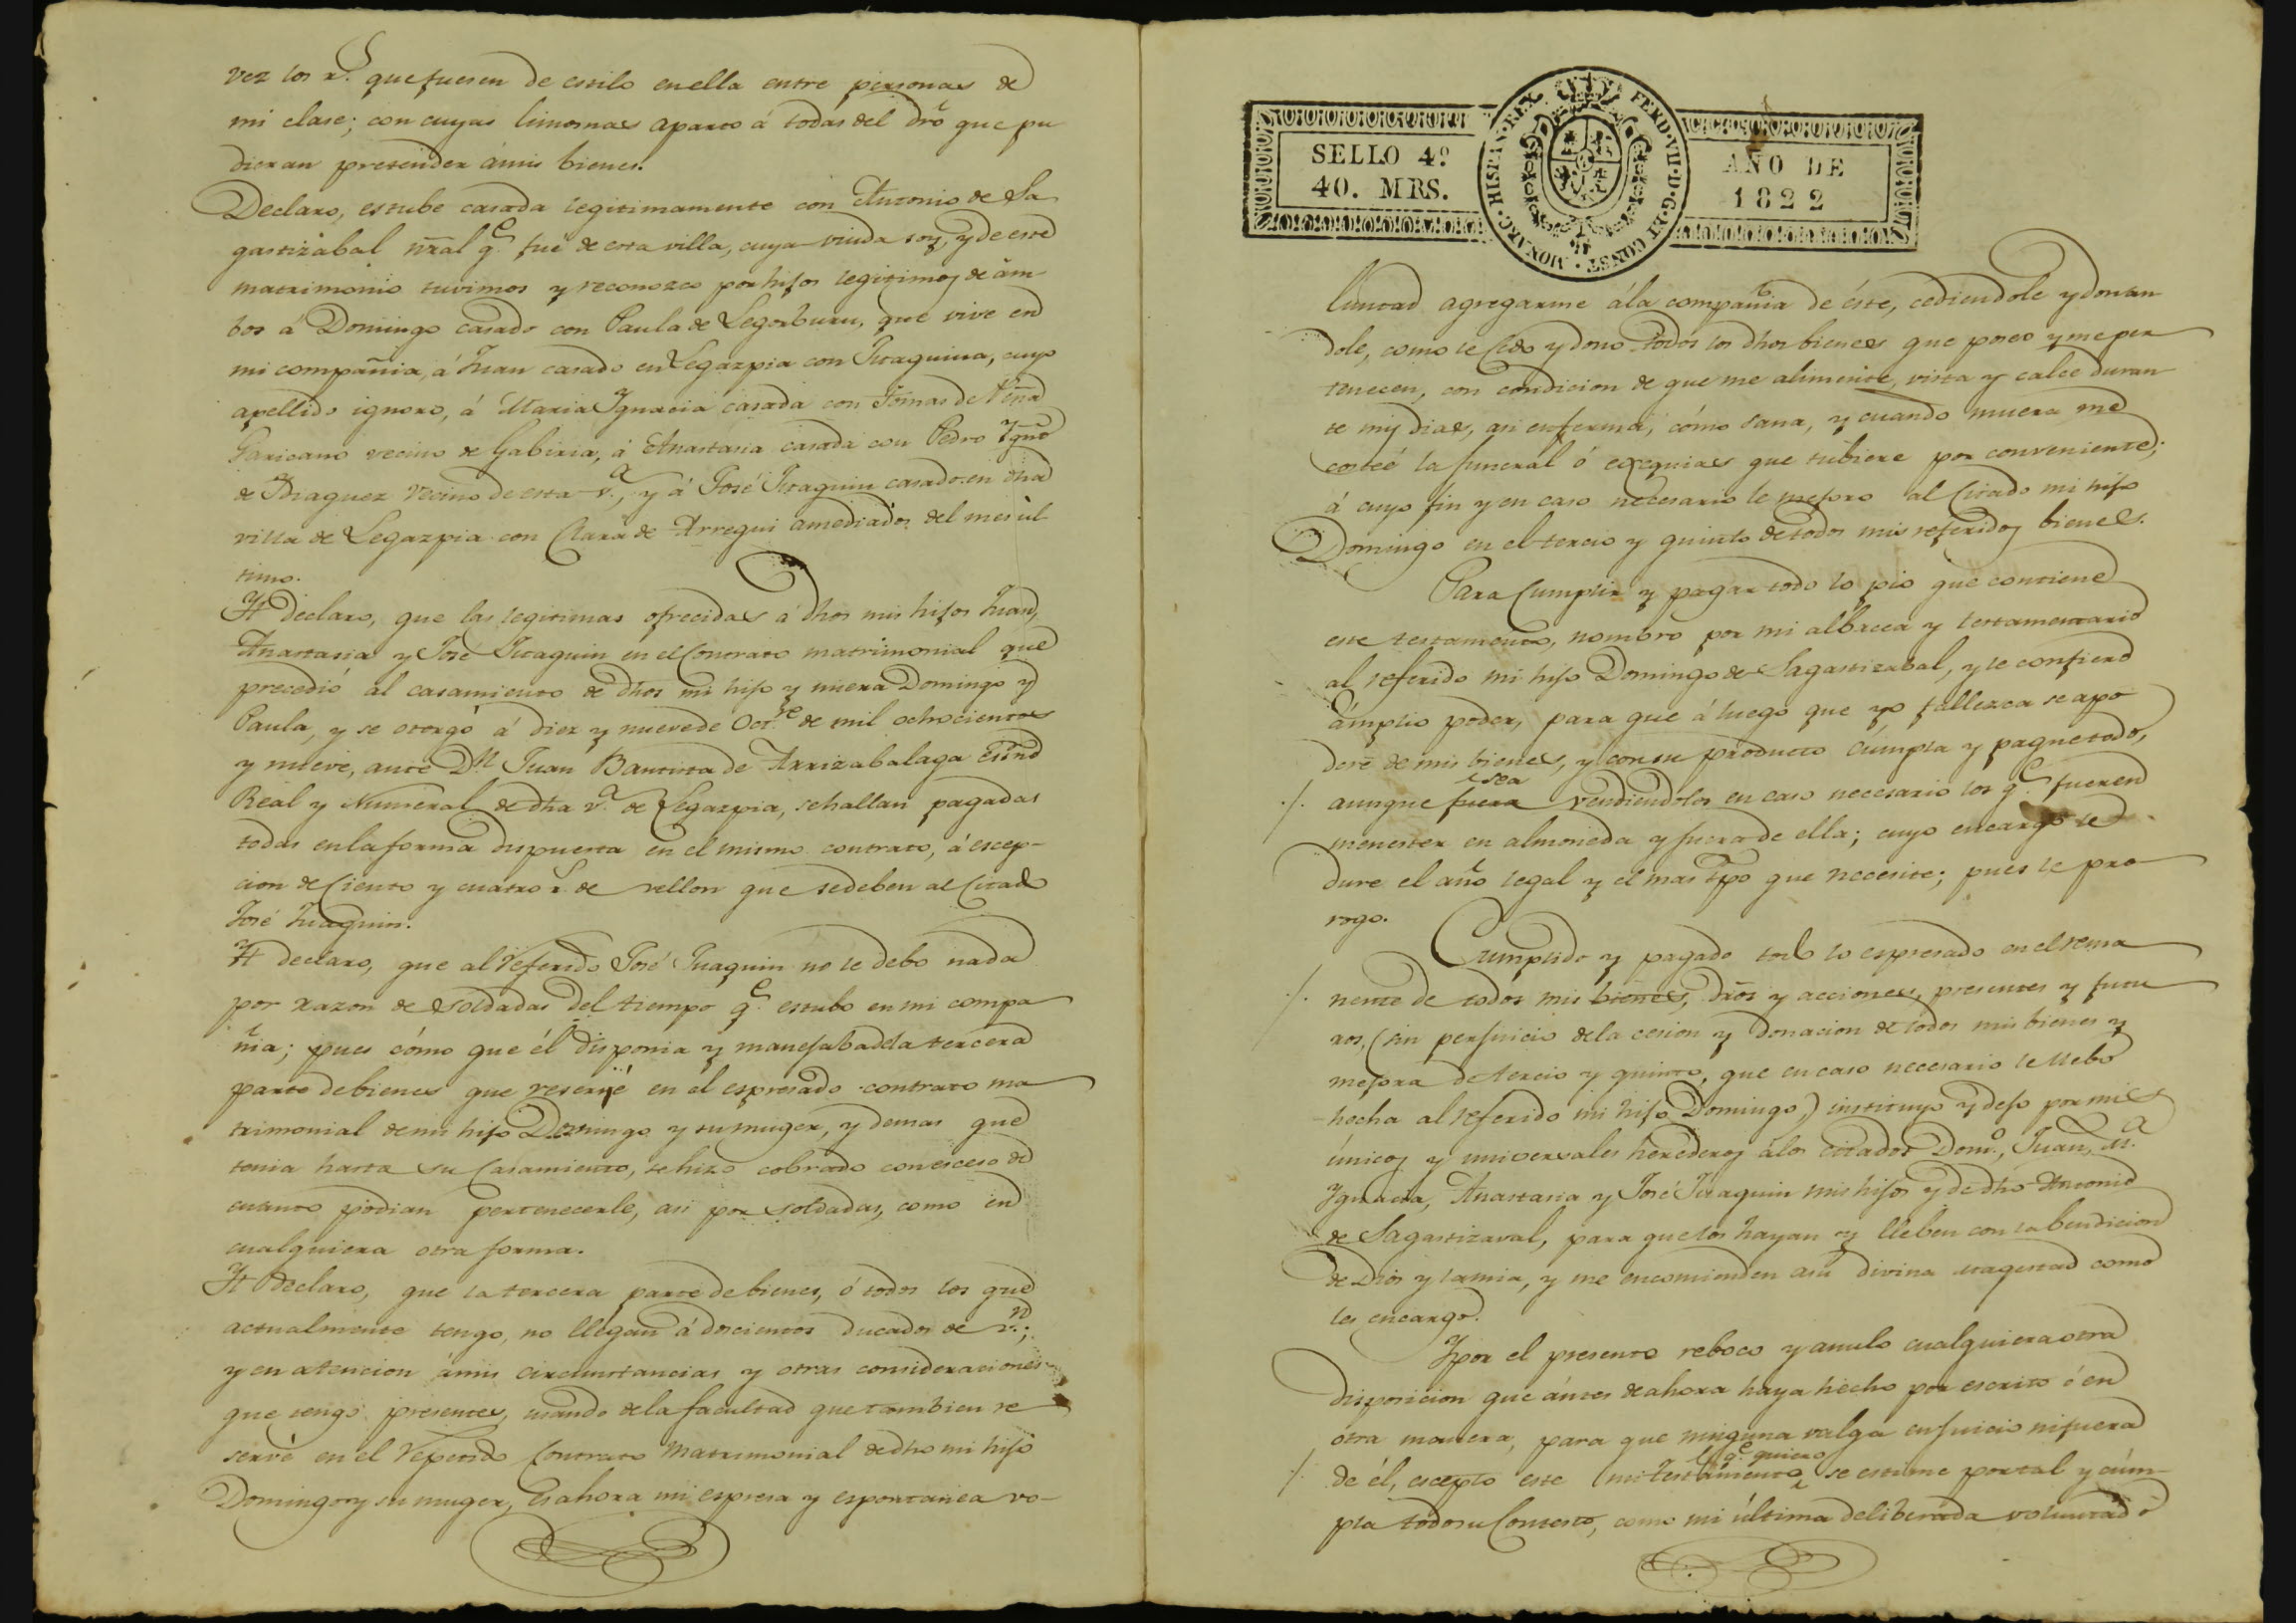 vez los r.s que fuesen de estilo en ella entre personas de
mi clase; con cuyas limosnas aparto á todas del dro que pu
dieran pretender ámis bienes.
Declaro, estube casada legitimamente con Antonio de Sa
gastizabal nral q.e fue de esta villa, cuya viuda soy, y de este
matrimonio tuvimos y reconozco por hijos legitimos de am
bos á Domingo casado con Paula de Legorburu, que vive en
mi compañia, á Juan casado en Legazpia con Juaquina, cuyo
apellido ignoro, á Maria Ygnacia casada con Tomas de
Garicano vecino de Gabiria, á Anastasia casada con Pedro Ygno
de Ydiaquez vecino de esta v.a, y á José Juaquin casado en dha
villa de Legazpia con Clara de Arregui amediados del mes úl
timo.
Yt declaro, que las legitimas ofrecidas á dhos mis hijos Juan,
Anastasia y José Juaquin en el Contrato matrimonial que
precedió al casamiento de dhos mi hijo y nuera Domingo y
Paula, y se otorgó á diez y nueve de Oct.re de mil ochocientos
y nueve, ante D.n Juan Bautista de Arrizabalaga Essno
Real y Numeral de dha v.a de Legazpia, se hallan pagadas
todas en la forma dispuesta en el mismo contrato, á escep-
cion de Ciento y cuatro r.s de vellon que se deben al Citado
José Juaquin.
Yt declaro, que al referido José Juaquin no le debo nada
por razon de soldadas del tiempo q.e estubo en mi compa
ñia; pues cómo que él disponia y manejaba de la tercera
parte de bienes que reservé en el espresado contrato ma
trimonial de mi hijo Domingo y su muger, y demas que
tenia hasta su Casamiento, se hizo cobrado con esceso de
cuanto podian pertenecerle, asi por soldadas, como en
cualquiera otra forma.
Yt declaro, que la tercera parte de bienes, ó todos los que
actualmente tengo, no llegan á doscientos ducados de v.n;
y en atencion ámis circunstancias y otras consideraciones
que tengo presentes, usando de la facultad que tambien re
servé en el repetido Contrato Matrimonial de dho mi hijo
Domingo y su muger, Es ahora mi espresa y espontanea vo-
SELLO 4º
40. MRS.
HISPAN·REX FERD·VII·D·G·ET CONST·MONARC·
AÑO DE
1822
luntad agregarme ála compañia de éste, cediendole y donan
dole, como le Cedo y dono todos los dhos bienes que poseo y me per
tenecen, con condicion de que me alimente, vista y calce duran
te mis dias, asi enferma, cómo sana, y cuando muera me
costeé la funeral ó exequias que tubiere por conveniente;
á cuyo fin y en caso necesario le mejoro al Citado mi hijo
Domingo en el tercio y quinto de todos mis referidos bienes.
Para Cumplir y pagar todo lo pio que contiene
este testamento, nombro por mi albacea y testamentario
al referido mi hijo Domingo de Sagastizabal, y le confiero
ámplio poder, para que á luego que yo fallezca se apo
dere de mis bienes, y con su producto cúmpla y pague todo,
sea
·/· aunque fuera vendiendolos en caso necesario los q.e fueren
menester en almoneda y fuera de ella; cuyo encargo le
dure el año legal y el mas tpo que necesite; pues le pro
rogo.
Cumplido y pagado todo lo espresado en el rema
·/· nente de todos mis bienes, dros y acciones, presentes y futu
ros, (sin perjuicio de la cesion y donacion de todos mis bienes y
mejora de tercio y quinto, que en caso necesario le llebo
hecha al referido mi hijo Domingo,) instituyo y dejo por mis
únicos y universales herederos álos citados Dom.o, Juan, M.a
Ygnacia, Anastasia y José Juaquin mis hijos y de dho Antonio
de Sagastizaval, para que los hayan y lleben con la bendicion
de Dios y la mia, y me encomienden asu divina Magestad como
les encargo.
Y por el presente reboco y anulo cualquiera otra
disposicion que ántes de ahora haya hecho por escrito ó en
otra manera, para que ninguna valga en juicio ni fuera
q.e quiero
·/· de él, escepto este mi testamento se estime por tal y cúm-
pla todo su Contesto, como mi última deliberada voluntad ó